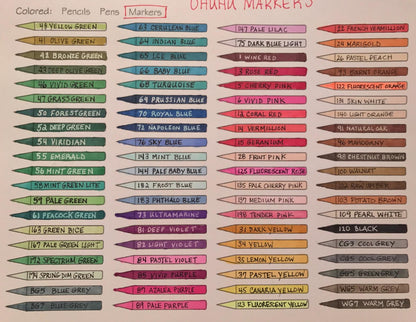 Colored: Pencils Pens Markers
OHUHU MARKERS
48 YELLOW GREEN
41 OLIVE GREEN
42 BRONZE GREEN
43 DEEP OLIVE GREEN
46 VIVID GREEN
47 GRASS GREEN
50 FOREST GREEN
52 DEEP GREEN
54 VIRIDIAN
55 EMERALD
56 MINT GREEN
58 MINT GREEN LITE
59 PALE GREEN
61 PEACOCK GREEN
163 GREEN BICE
167 PALE GREEN LIGHT
172 SPECTRUM GREEN
174 SPRING DIM GREEN
BG5 BLUE GREY
BG7 BLUE GREY
63 CERULEAN BLUE
64 INDIAN BLUE
65 ICE BLUE
66 BABY BLUE
68 TURQUOISE
69 PRUSSIAN BLUE
70 ROYAL BLUE
72 NAPOLEON BLUE
76 SKY BLUE
143 MINT BLUE
144 PALE BABY BLUE
182 FROST BLUE
183 PHTHALO BLUE
73 ULTRAMARINE
81 DEEP VIOLET
82 LIGHT VIOLET
84 PASTEL VIOLET
85 VIVID PURPLE
87 AZALEA PURPLE
89 PALE PURPLE
147 PALE LILAC
75 DARK BLUE LIGHT
1 WINE RED
3 ROSE RED
5 CHERRY PINK
6 VIVID PINK
12 CORAL RED
14 VERMILLION
15 GERANIUM
28 FRUIT PINK
125 FLUORESCENT ROSE
135 PALE CHERRY PINK
137 MEDIUM PINK
198 TENDER PINK
31 DARK YELLOW
34 YELLOW
35 LEMON YELLOW
37 PASTEL YELLOW
45 CANARIA YELLOW
123 FLUORESCENT YELLOW
22 FRENCH VERMILLION
24 MARIGOLD
26 PASTEL PEACH
93 BURNT ORANGE
122 FLUORESCENT ORANGE
131 SKIN WHITE
140 LIGHT ORANGE
91 NATURAL OAK
96 MAHOGANY
98 CHESTNUT BROWN
100 WALNUT
102 RAW UMBER
103 POTATO BROWN
104 PEARL WHITE
120 BLACK
CG3 COOL GREY
CG5 COOL GREY
GG5 GREEN GREY
WG5 WARM GREY
WG7 WARM GREY